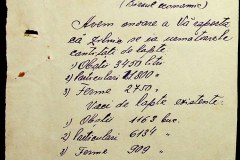 (Biroul economic)
Avem onoare a Vă raporta
că Zilnic se ia următoarele
cantități de lapte
1) Obștii 3450 litri
2) Particulari 21800 "
3) Ferme 2750 "
Vaci de lapte existente:
1) Obștii 1163 buc.
2) Particulari 6134 "
3) Ferme 909 "